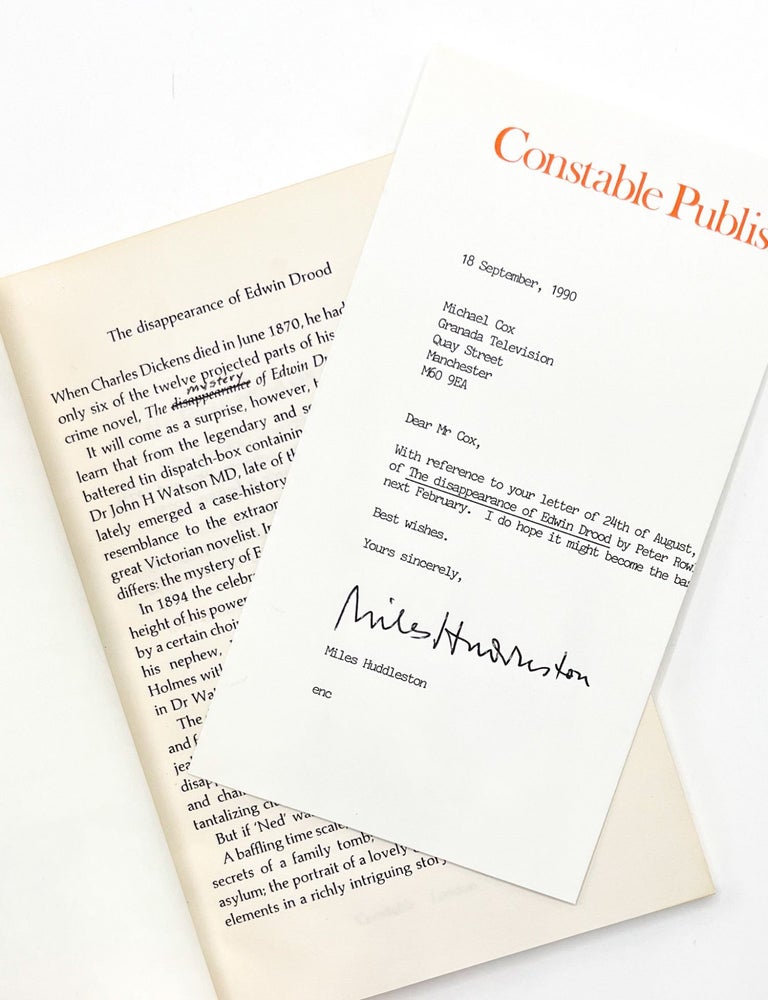 The disappearance of Edwin Drood
When Charles Dickens died in June 1870, he had
only six of the twelve projected parts of his
mystery
crime novel, The disappearance of Edwin
It will come as a surprise, however,
learn that from the legendary and
battered tin dispatch-box containin
Dr John H Watson MD, late of
lately emerged a case-history
resemblance to the extraor
great Victorian novelist.
differs: the mystery of
In 1894 the celebr
height of his power
by a certain choi
his nephew,
Holmes with
in Dr
The
and
disap
and
tantalizing
But if 'Ned'
A baffling time scale
secrets of a family tomb;
asylum; the portrait of a lovely
elements in a richly intriguing story
Constable Publis
18 September, 1990
Michael Cox
Granada Television
Quay Street
Manchester
M60 9EA
Dear Mr Cox,
With reference to your letter of 24th of August,
of The disappearance of Edwin Drood by Peter Row
next February. I do hope it might become the bas
Best wishes.
Yours sincerely,
Miles Huddleston
Miles Huddleston
enc